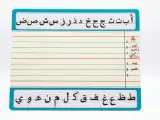 أ ب ت ث ج ح خ د ذ ر ز س ش ص ض
ط ظ ع غ ف ق ك ل م ن ه و ي